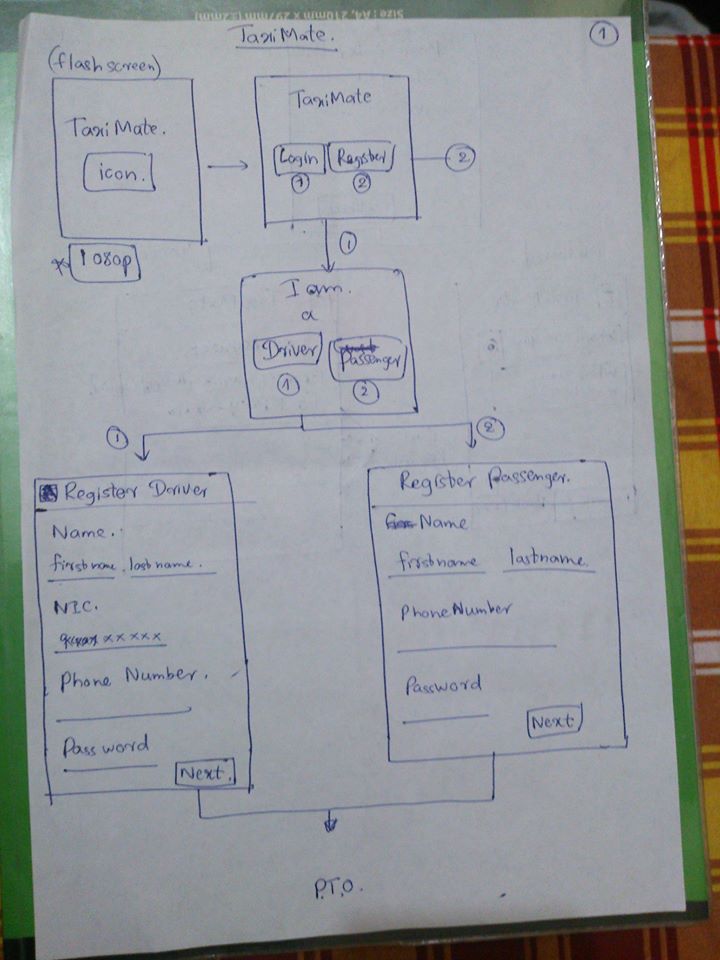 Size : A4, 210mm x 297mm (±2mm)
TaxiMate.
1
(flash screen)
TaxiMate.
icon.
* 1080p
TaxiMate
Login Register
1 2
2
1
I am.
a
Driver Passenger
1 2
1 2
Register Driver
Name.
firstname. lastname.
NIC.
xxxxx
Phone Number.
Password
Next.
Register Passenger.
Name
firstname lastname.
Phone Number
Password
Next
P.T.O.